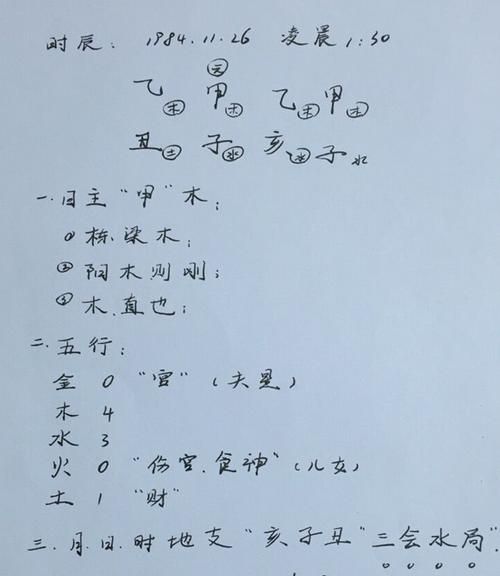 时辰: 1984.11.26 凌晨1:30
元
乙木 甲木 乙木 甲木
丑土 子水 亥水 子水
一.日主"甲"木;
①栋梁木;
②阳木则刚;
③木.直也;
二.五行:
金 0 "官"(夫星)
木 4
水 3
火 0 "伤官.食神"(儿女)
土 1 "财"
三.月.日.时地支"亥子丑"三会水局".